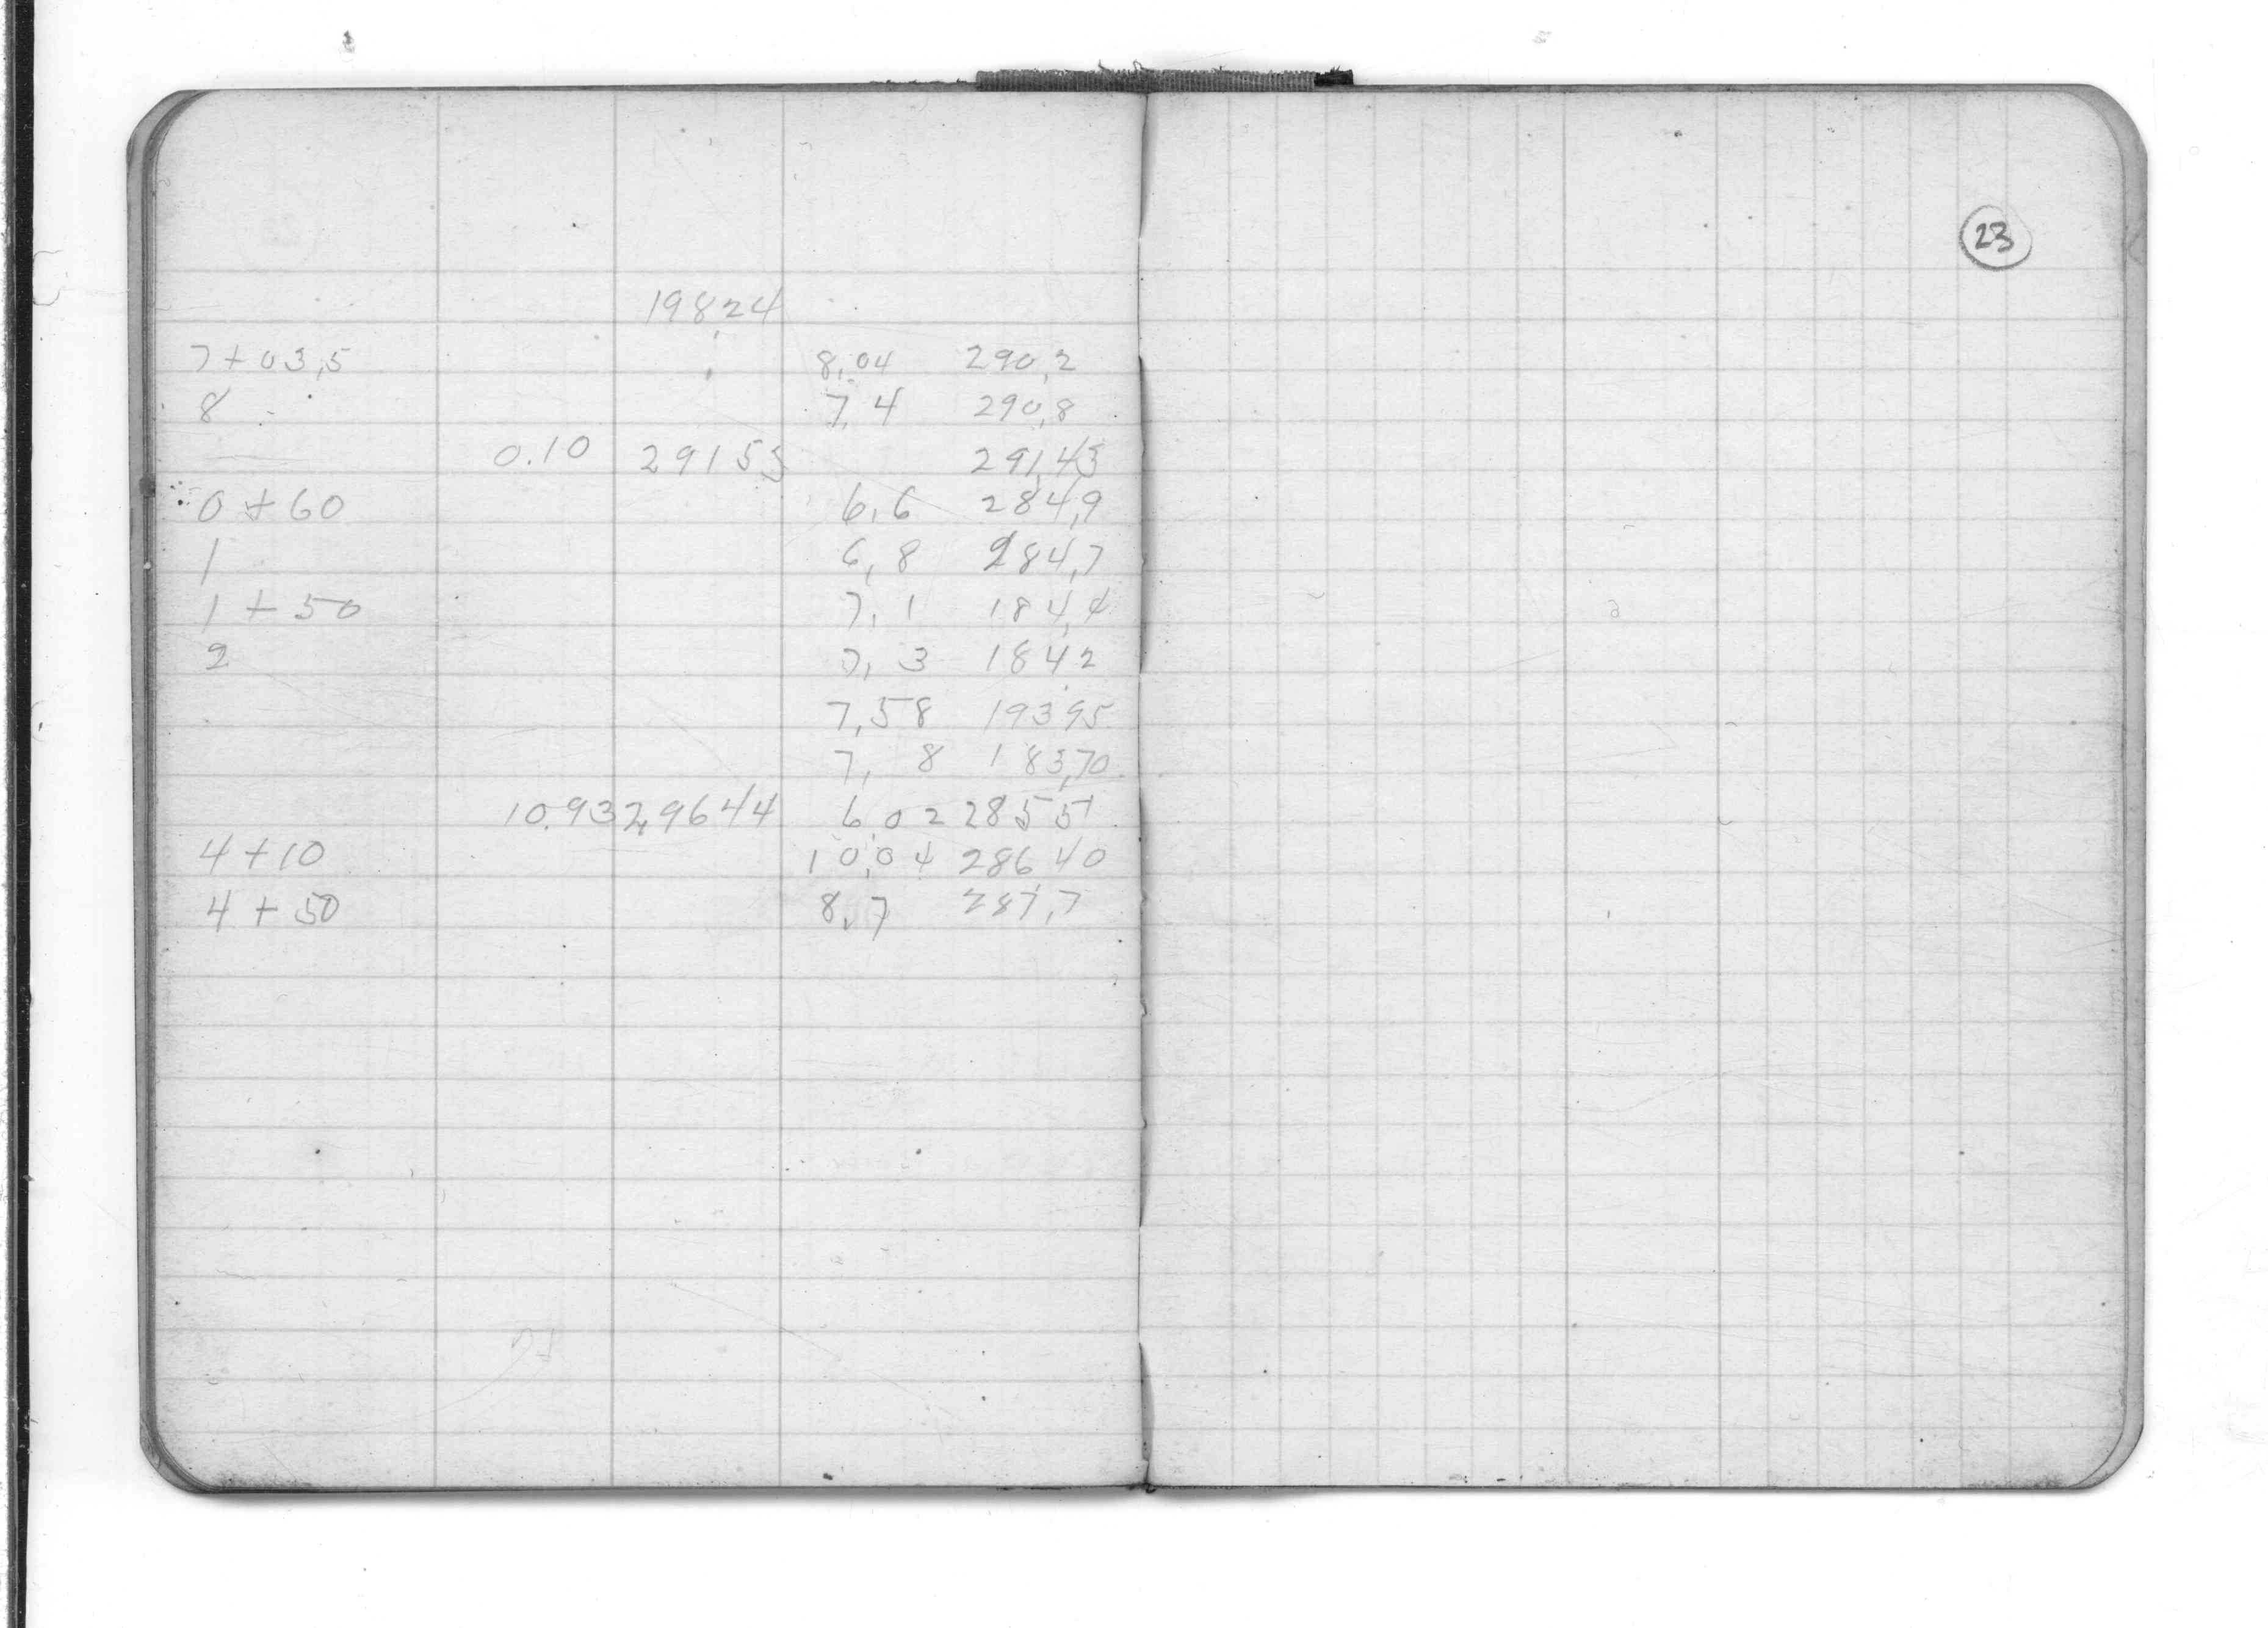 19824
7+03,5 8,04 290,2
8 7,4 290,8
0.10 29153 291,43
0+60 6,6 284,9
1 6,8 284,7
1+50 7,1 184,4
2 7,3 1842
7,58 19395
7,8 183,70
10.93 29644 6,02 28551
4+10 10,04 28640
4+50 8,7 287,7
23